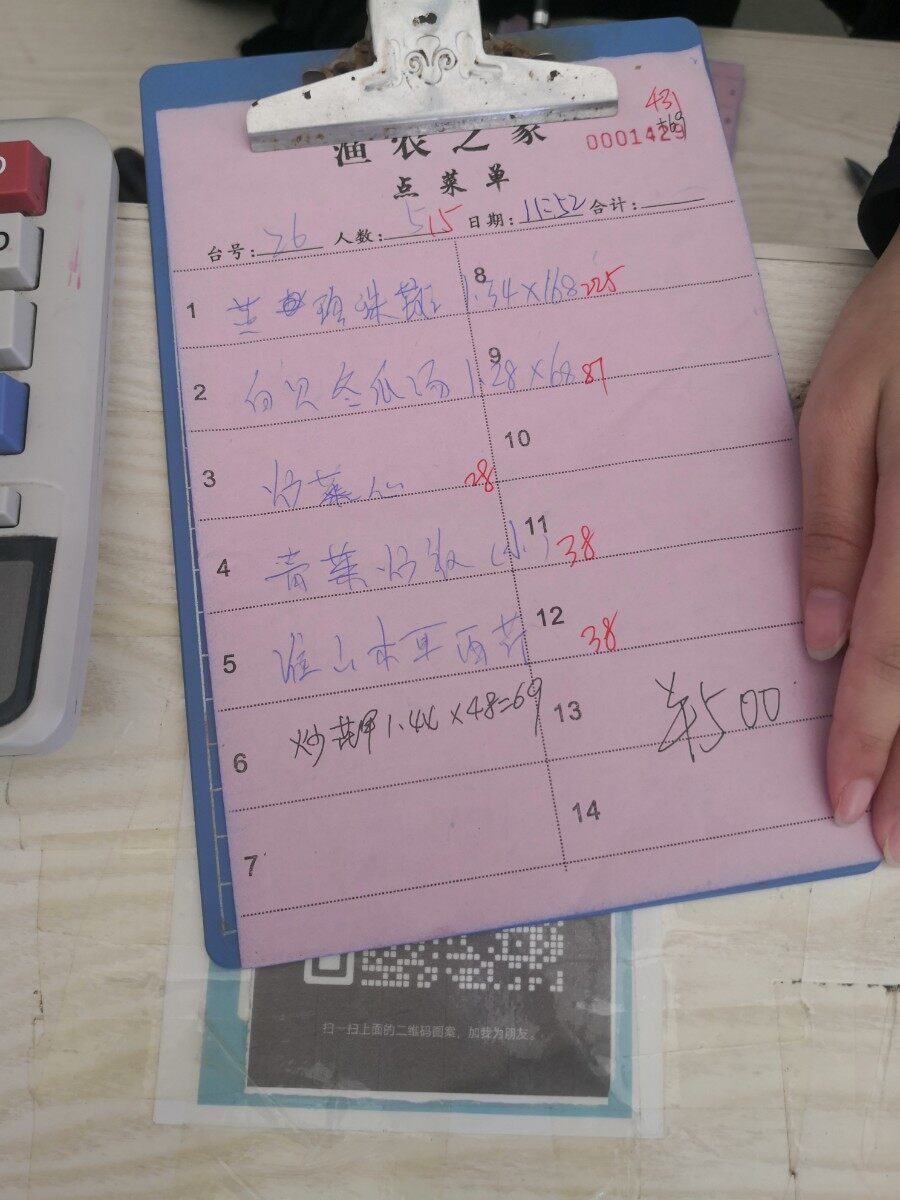 渔农之家
431
+69
0001429
点菜单
台号: 26 人数: 5 15 日期: 11:52 合计:
1 珍珠斑 1.34×168 225
8
2 白贝冬瓜汤 1.28×68 87
9
3 炒菜心 28
10
4 青菜炒 (小) 38
11
5 淮山木耳西芹 38
12
6 炒花甲 1.44×48=69
13
¥500
7
14
扫一扫上面的二维码图案，加我为朋友。